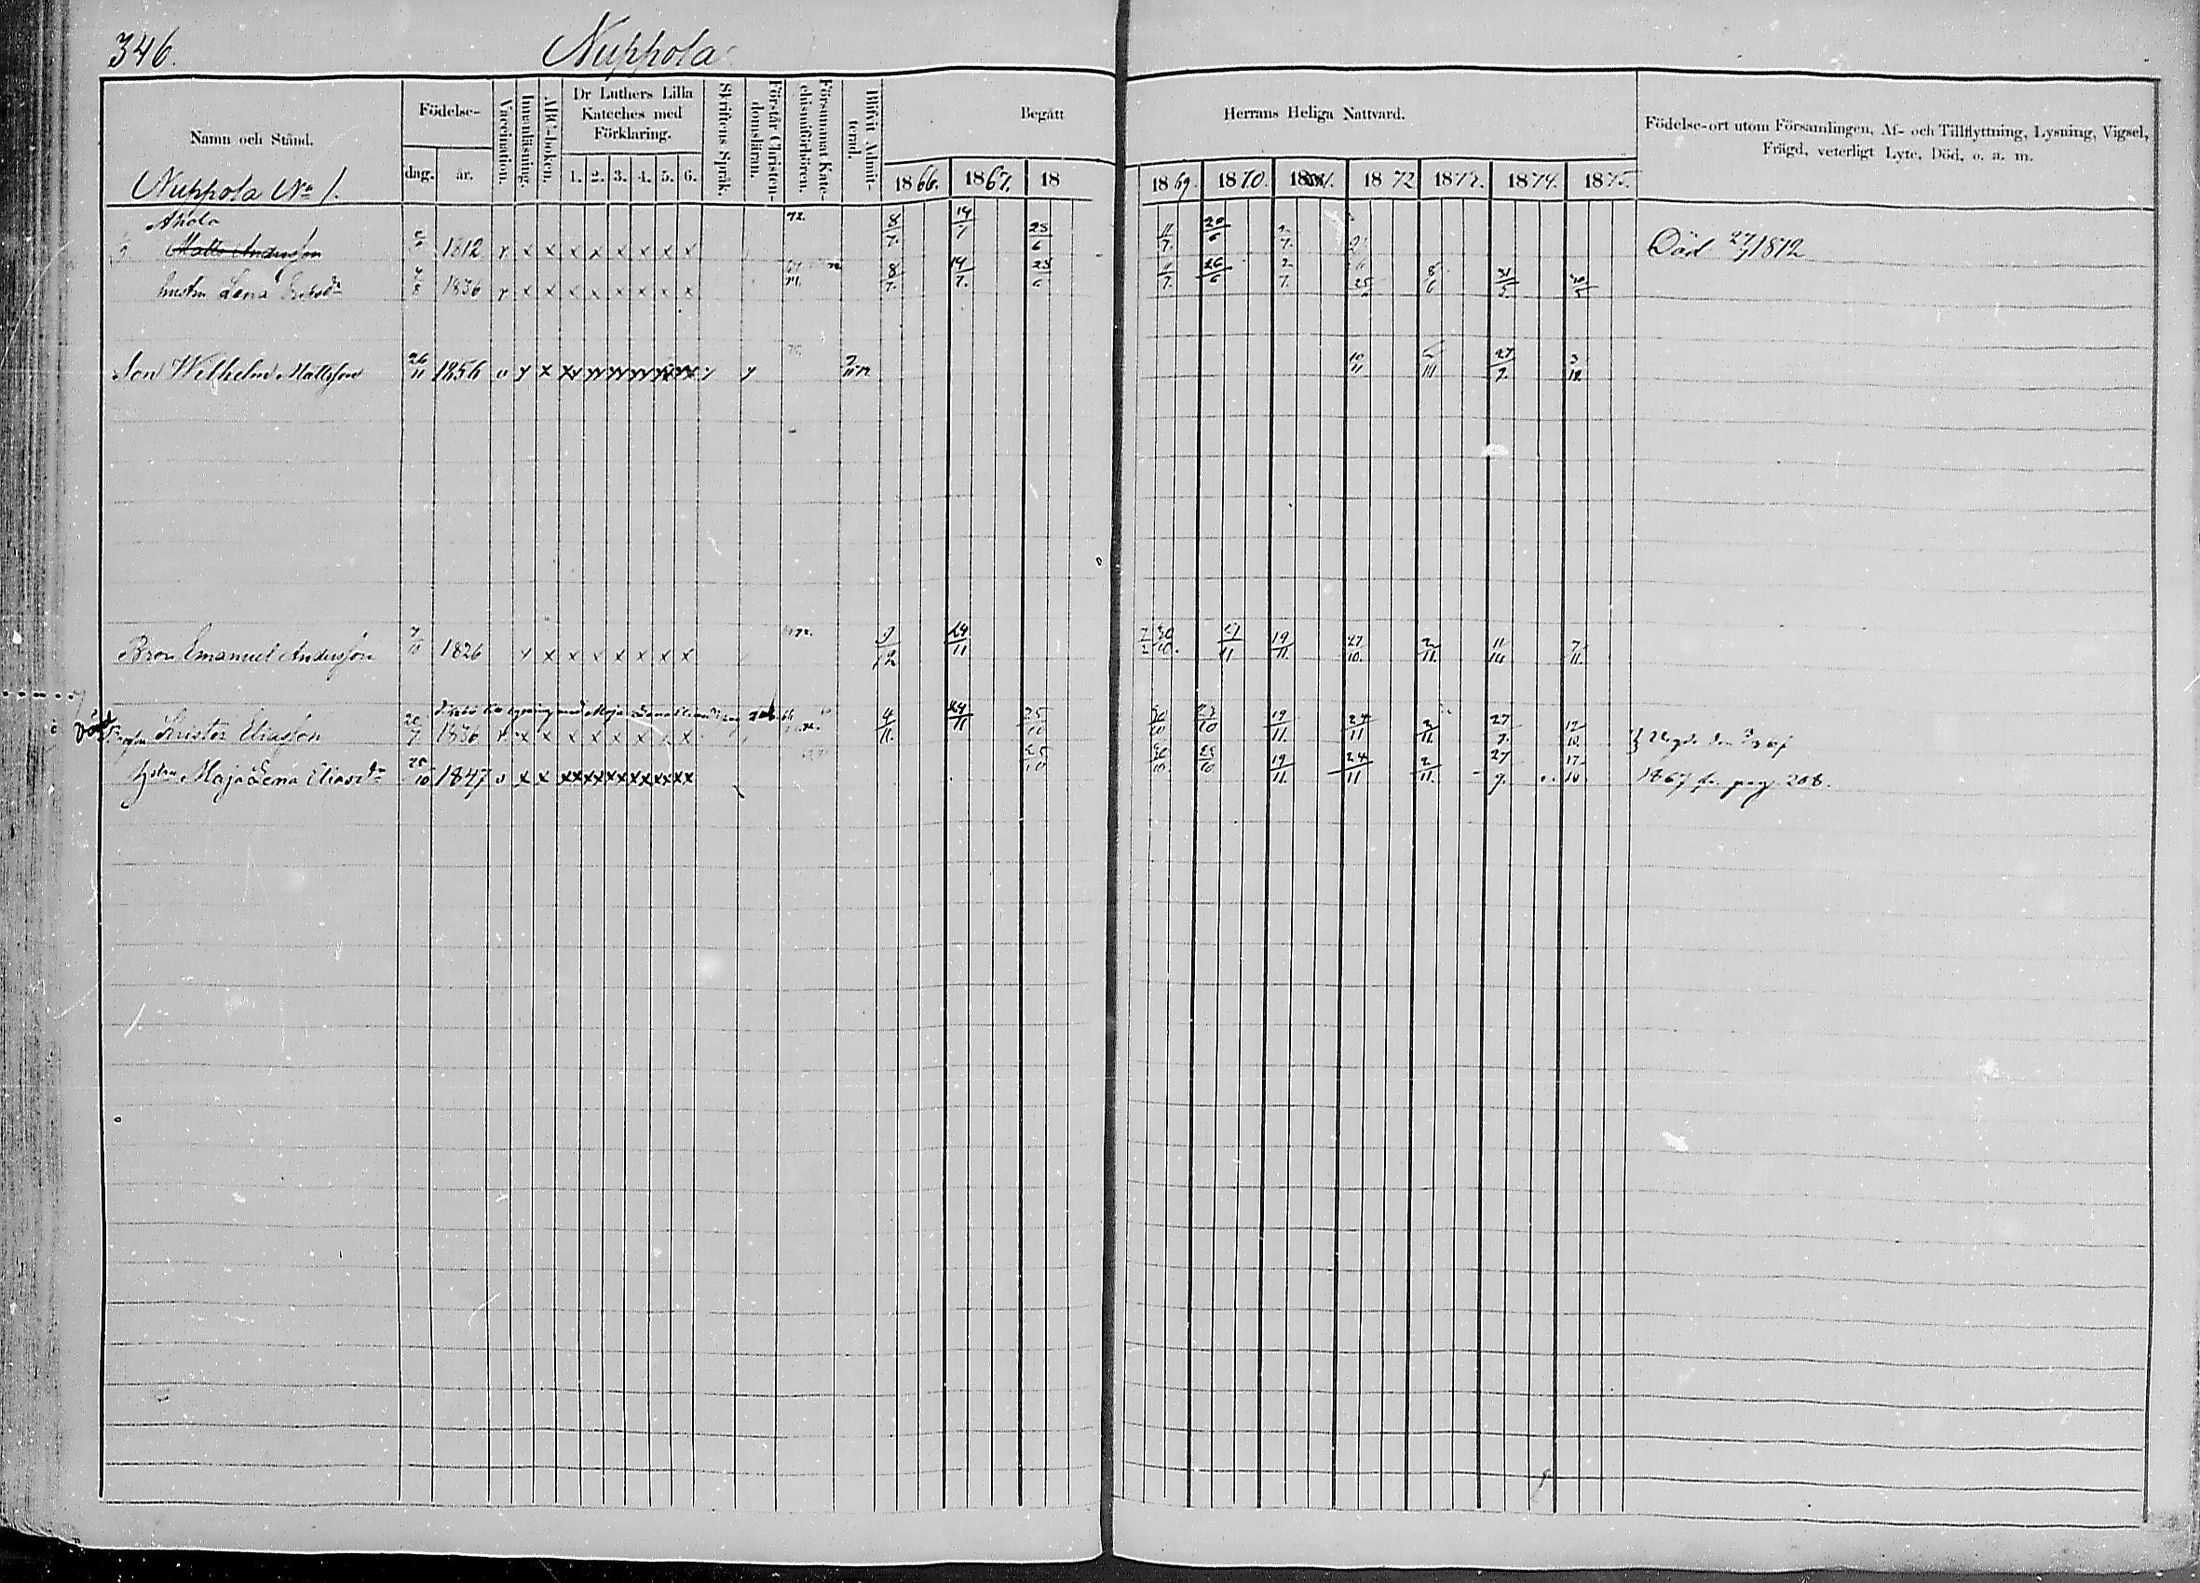 346.
Nuppola
Namn och Stånd.
Födelse-
dag.
år.
Vaccination.
Innenläsning.
ABC-boken.
Dr Luthers Lilla
Kateches med
Förklaring.
1. 2. 3. 4. 5. 6.
Skriftens Språk.
Förstår Christen-
domsläran.
Försummat Kate-
chismiförhören.
Blifvit Admit-
terad.
Begått Herrans Heliga Nattvard.
1866. 1867. 18 1869. 1870. 1871. 1872 1873. 1874. 1875.
Födelse-ort utom Församlingen, Af- och Tillflyttning, Lysning, Vigsel,
Frägd, veterligt Lyte, Död, o. a. m.
Nuppola No 1.
Ahola
Matts Andersson 1812 x x x x x x x x x 72. 8/7. 14/7 28/6 11/7. 26/6 2/7. Död 27/7 1872
hustru Lena Eriksdr 1836 x x x x x x x x x 8/7. 14/7. 28/6 11/7. 26/6 2/7. 31/5
Son Wilhelm Mattsson 26/11 1856 v x x 10/11 27/9. 3/12.
Bron Emanuel Andersson 1826 x x x x x x x x 9/12 24/11 30/10. 21/11 19/11. 27/10. 2/11. 7/11.
Brorson Krister Eliasson 20/7 1836 v x x x x x x x x 4/11. 24/11 25/10 30/10 23/10 19/11. 24/11 2/11. 27/9. 17/10.
Hstru Maja Lena Eliasdr 25/10 1847 v x x xx xx xx xx xx xx 25/10 30/10. 23/10. 19/11. 24/11 2/11. 27/9. 17/10. 1867 fr. pag. 208.